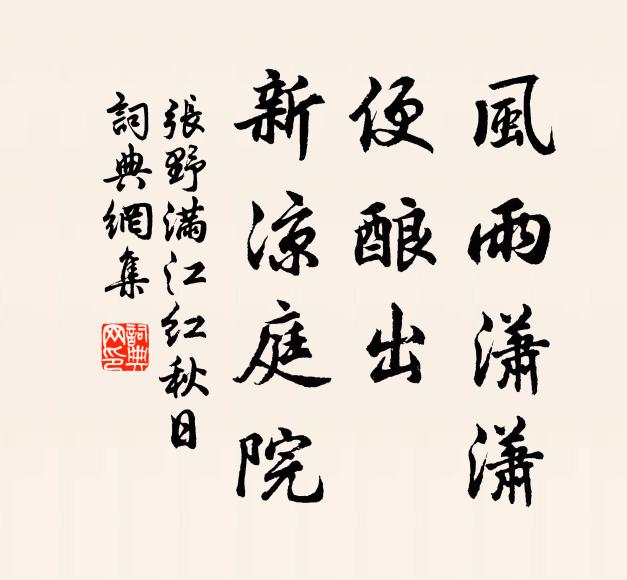 風雨瀟瀟
便酿出
新涼庭院
張野满江红秋日
詞典網集
詞典
网印